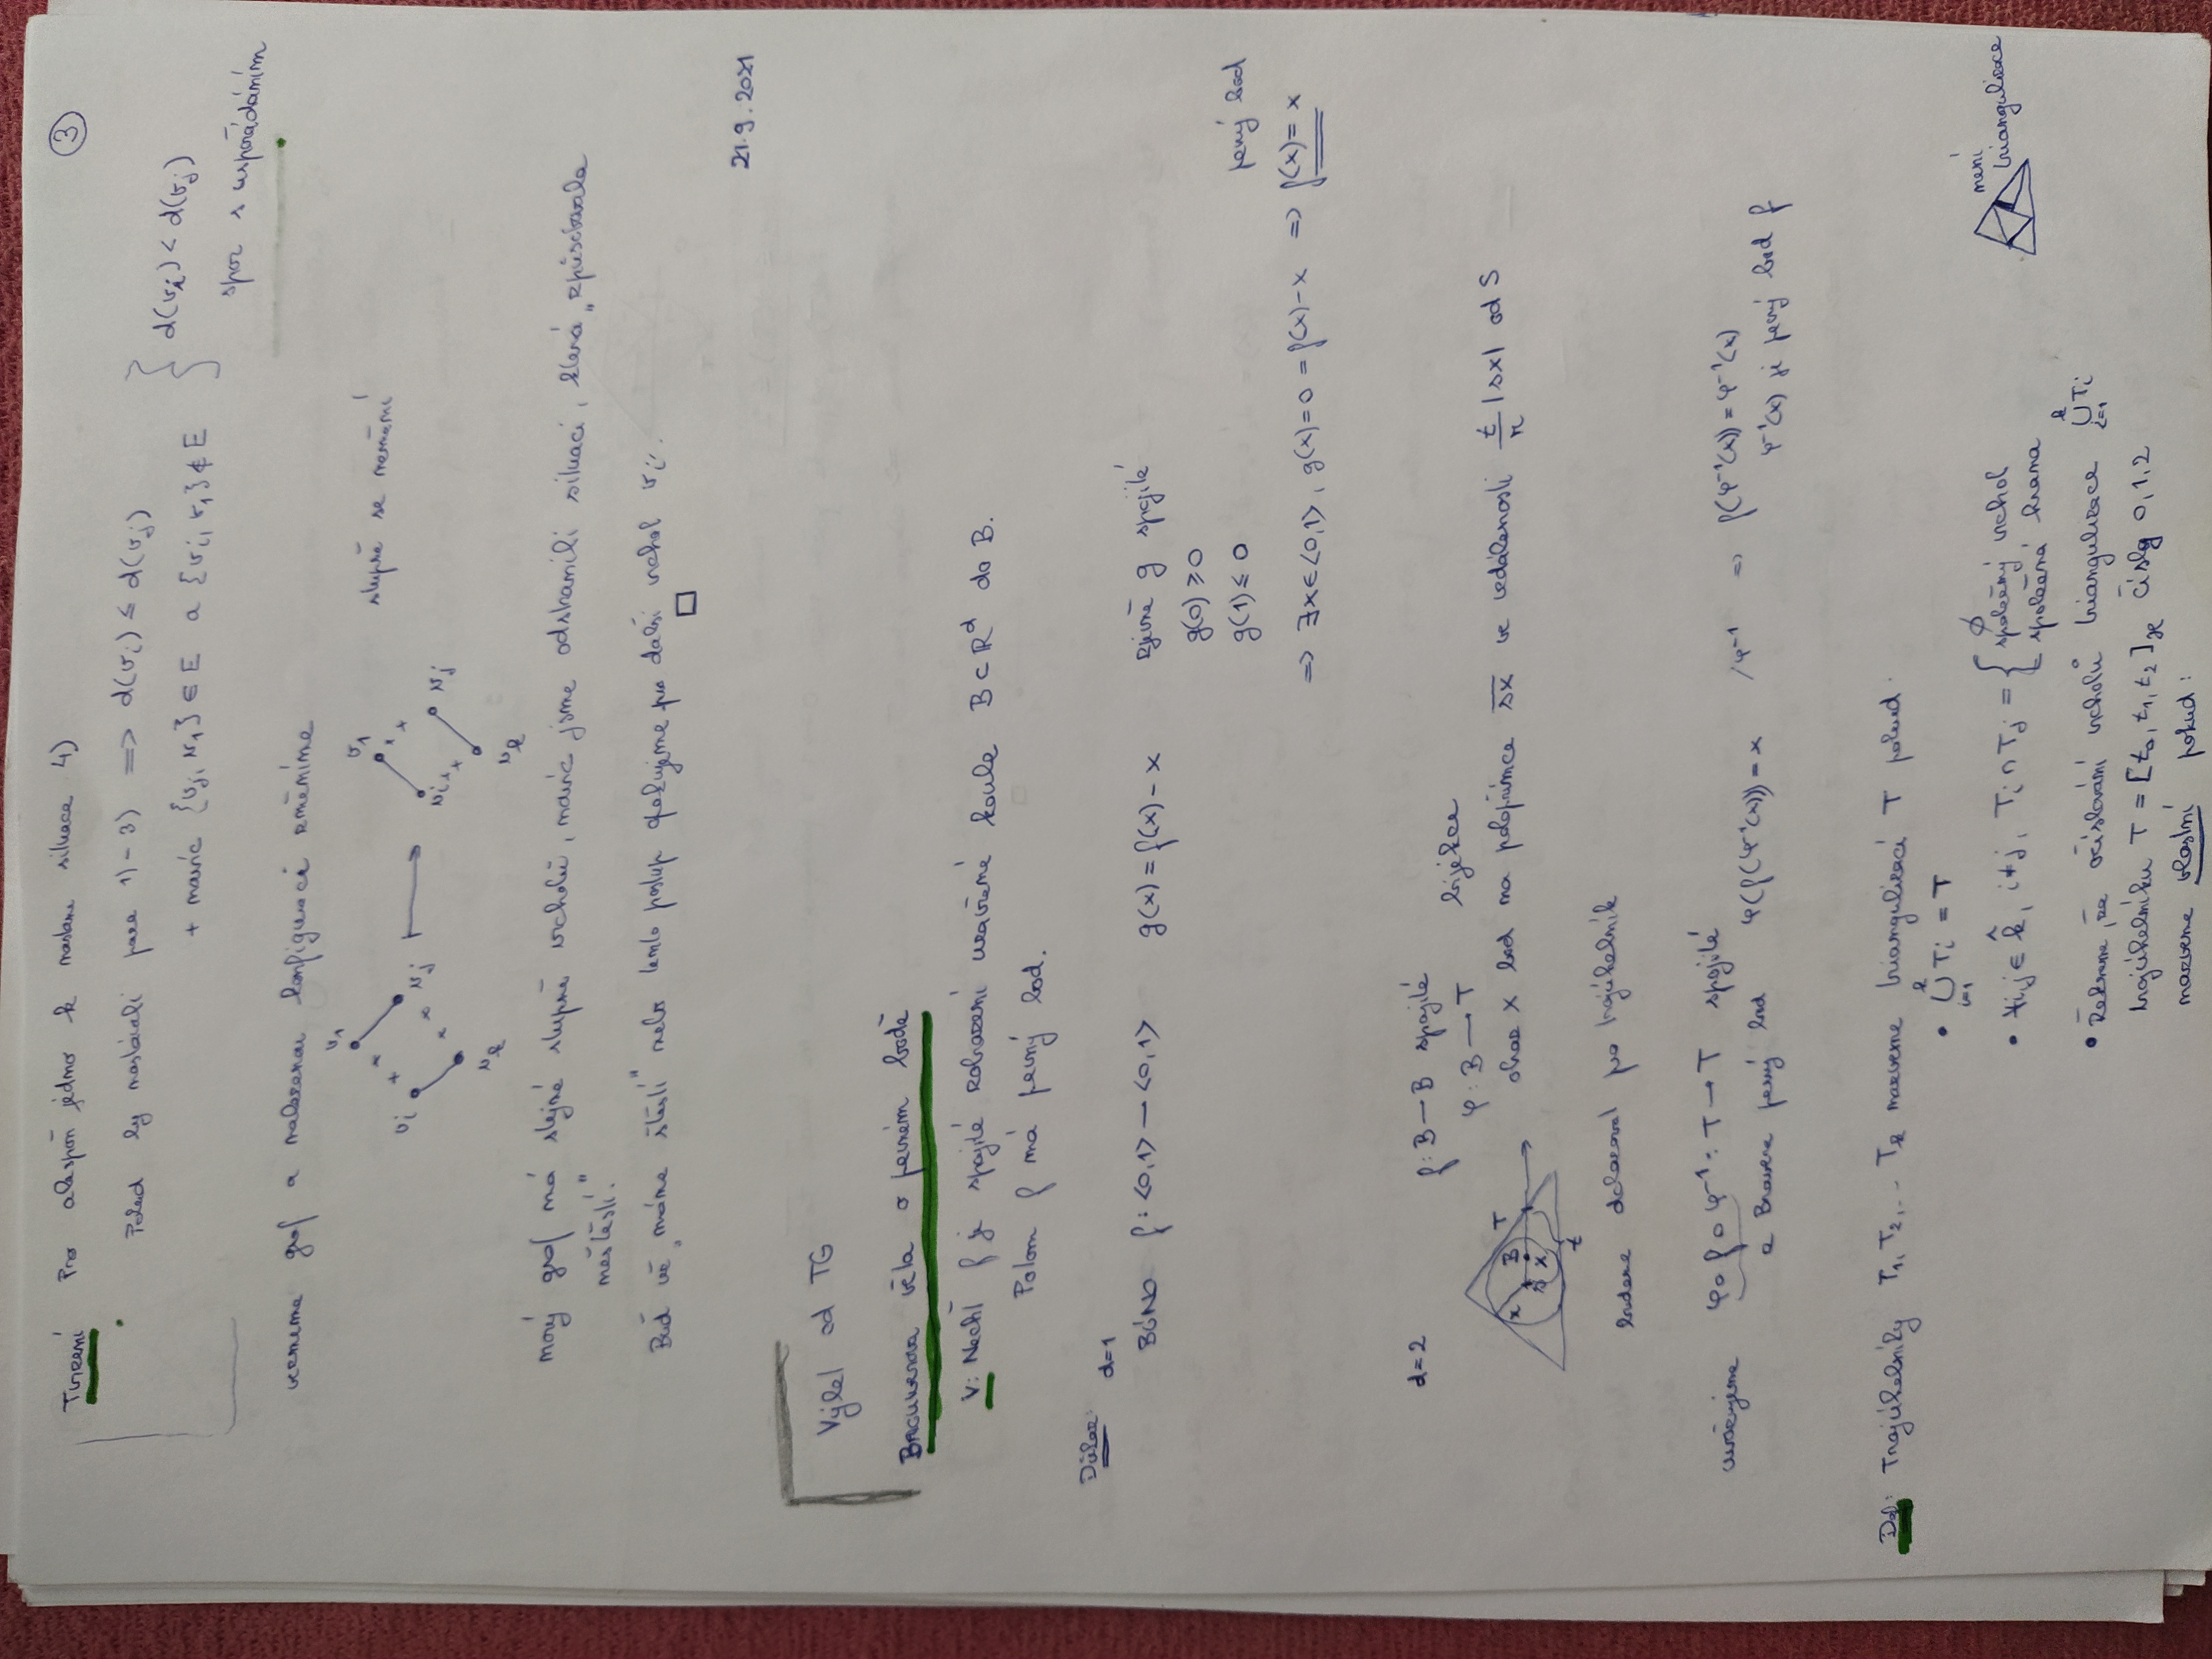 ③
Tvrzení Pro alespoň jedno k nastane situace 4)
Pokud by nastávali pace 1)-3) => d(v_i) ≤ d(v_j)
+ navíc {v_j, v_1} ∈ E a {v_i, v_1} ∉ E
} d(v_i) < d(v_j)
spor s uspořádáním
vezmeme graf a nalezenou konfiguraci změníme
stupně se nemění
v_1 v_i v_j v_k
v_1 v_i v_j v_k
nový graf má stejné stupně vrcholů, navíc jsme odstranili situaci, která „způsobovala
neštěstí".
Buď už „máme štěstí" nebo tento postup opakujeme pro další vrchol v_i. □
21.9.2021
Výlet od TG
BROUWEROVA věta o pevném bodě
V: Nechť f je spojité zobrazení uzavřené koule B ⊂ R^d do B.
Potom f má pevný bod.
Důkaz: d=1
BÚNO f: <0,1> → <0,1> g(x) = f(x) - x zjevně g spojité
g(0) ≥ 0
g(1) ≤ 0
pevný bod
=> ∃x ∈ <0,1>, g(x) = 0 = f(x) - x => f(x) = x
d=2 f: B → B spojité
φ: B → T bijekce
obraz x bod na polopřímce sx ve vzdálenosti t/r |sx| od S
T B s x r t
budeme dokazovat po trojúhelník
uvažujeme φ∘f∘φ^-1: T → T spojité
a Brouwera pevný bod φ(f(φ^-1(x))) = x /φ^-1 => f(φ^-1(x)) = φ^-1(x)
φ^-1(x) je pevný bod f
Def: Trojúhelníky T_1, T_2, ... T_k nazveme triangulací T pokud:
• ⋃_{i=1}^k T_i = T
• ∀i,j ∈ k̂, i≠j, T_i ∩ T_j = { ∅
společný vrchol
společná hrana
není
triangulace
• Řekneme, že očíslování vrcholů triangulace ⋃_{i=1}^k T_i
trojúhelníku T = [t_0, t_1, t_2] z čísly 0,1,2
nazveme vlastní pokud: